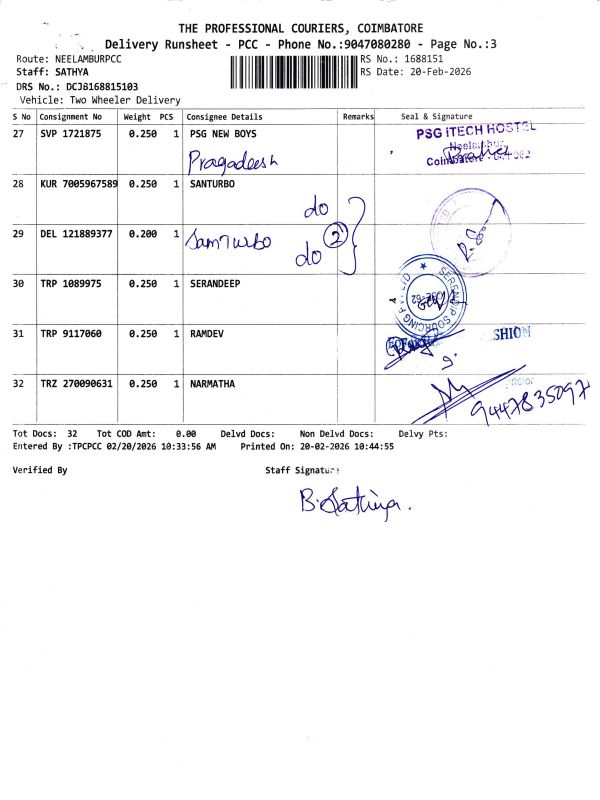 THE PROFESSIONAL COURIERS, COIMBATORE
Delivery Runsheet - PCC - Phone No.:9047080280 - Page No.:3
Route: NEELAMBURPCC RS No.: 1688151
Staff: SATHYA RS Date: 20-Feb-2026
DRS No.: DCJB168815103
Vehicle: Two Wheeler Delivery
S No Consignment No Weight PCS Consignee Details Remarks Seal & Signature
27 SVP 1721875 0.250 1 PSG NEW BOYS PSG iTECH HOSTEL
Pragadeesh Coimbatore
28 KUR 7005967589 0.250 1 SANTURBO
do
29 DEL 121889377 0.200 1 Samturbo 2
do
30 TRP 1089975 0.250 1 SERANDEEP SERENDIP SOURCING
31 TRP 9117060 0.250 1 RAMDEV SHION
32 TRZ 270090631 0.250 1 NARMATHA
9447835097
Tot Docs: 32 Tot COD Amt: 0.00 Delvd Docs: Non Delvd Docs: Delvy Pts:
Entered By :TPCPCC 02/20/2026 10:33:56 AM Printed On: 20-02-2026 10:44:55
Verified By Staff Signature
B. Sathiya.